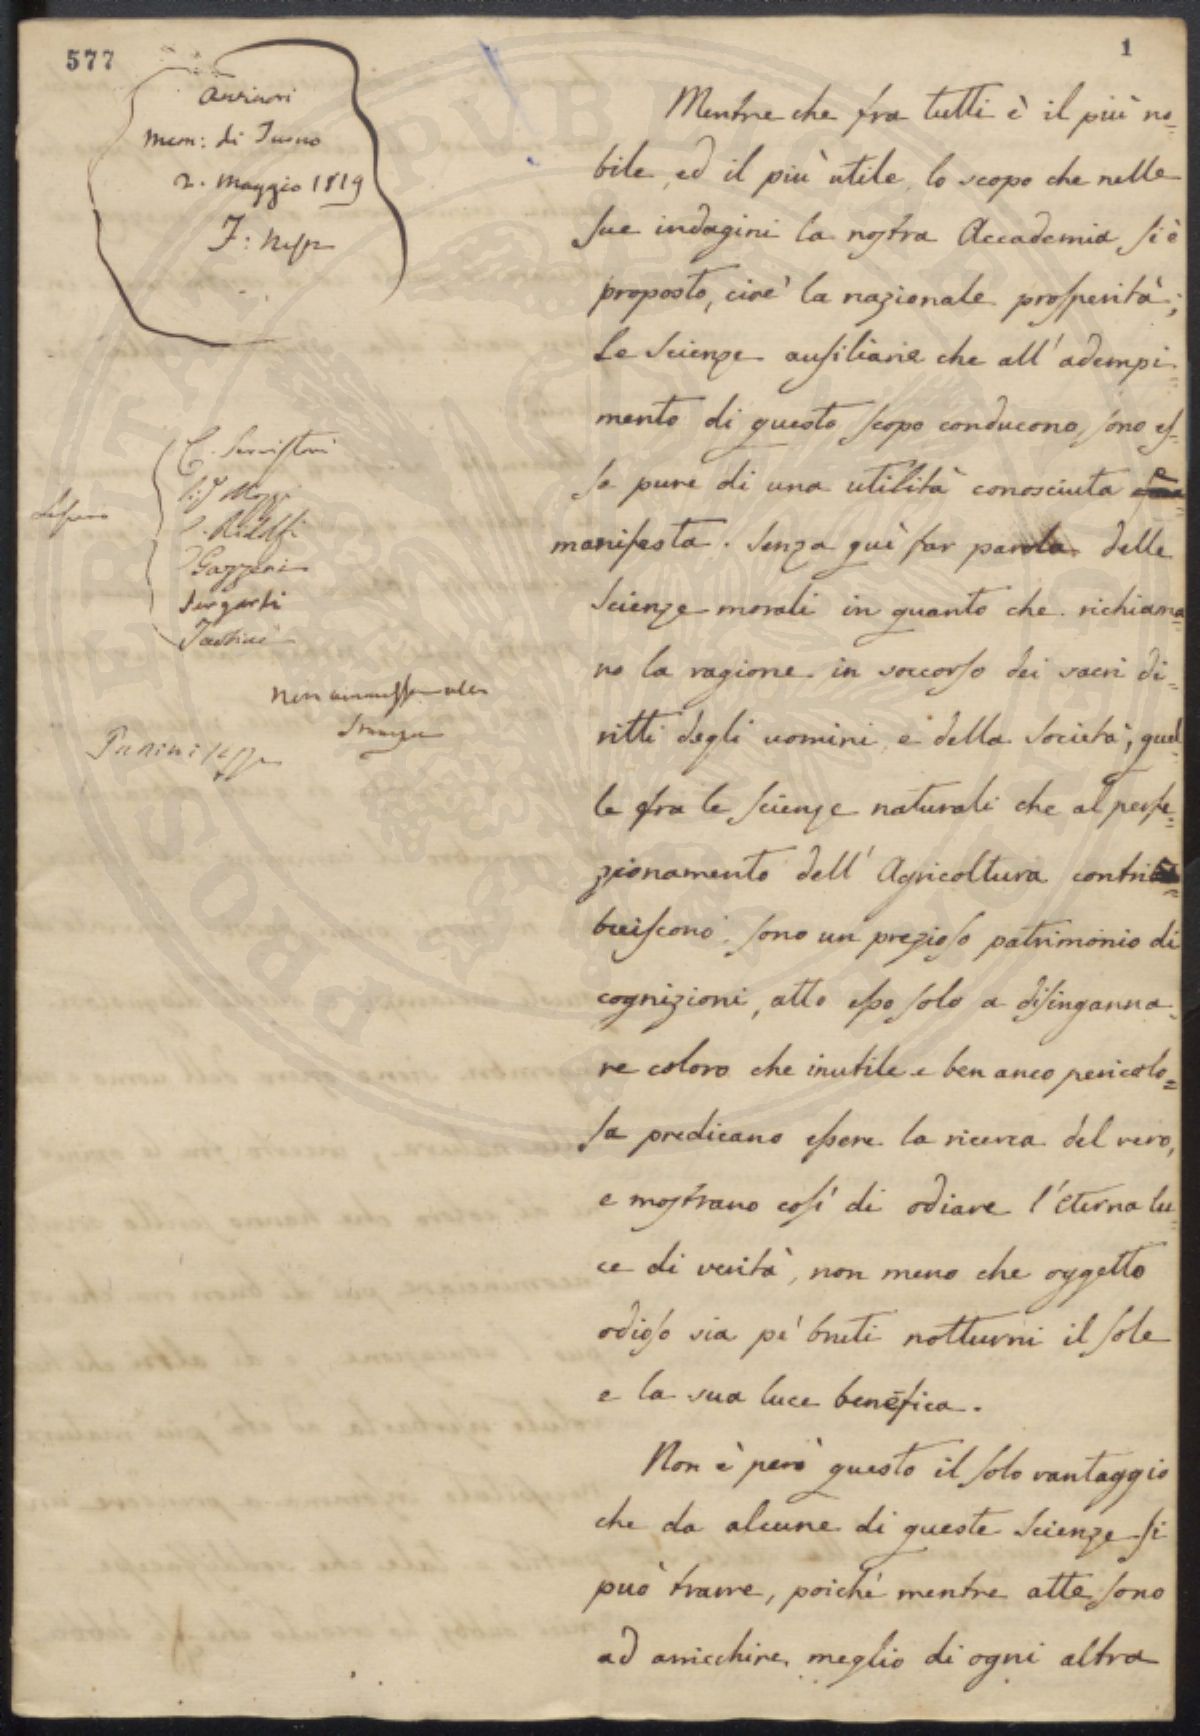 577
1
Mem: di Turno
2. Maggio 1819
C. Servistori
Ridolfi
Gazzeri
Tartini
Mentre che fra tutti è il più no=
bile, ed il più utile, lo scopo che nelle
sue indagini la nostra Accademia si è
proposto, cioè la nazionale prosperità;
Le Scienze ausiliarie che all' adempi=
mento di questo scopo conducono, sono es=
se pure di una utilità conosciuta e
manifesta. Senza quì far parola delle
Scienze morali in quanto che richiama=
no la ragione in soccorso dei sacri di=
ritti degli uomini, e della Società, quel=
le fra le scienze naturali che al perfe=
zionamento dell' Agricoltura contri=
buiscono, sono un prezioso patrimonio di
cognizioni, atto esso solo a disinganna=
re coloro che inutile e ben anco pericolo=
sa predicano essere la ricerca del vero,
e mostrano così di odiare l'eterna lu=
ce di verità, non meno che oggetto
odioso sia pe' bruti notturni il sole
e la sua luce benefica.
Non è però questo il solo vantaggio
che da alcune di queste Scienze si
può trarre, poichè mentre atte sono
ad arricchire meglio di ogni altra